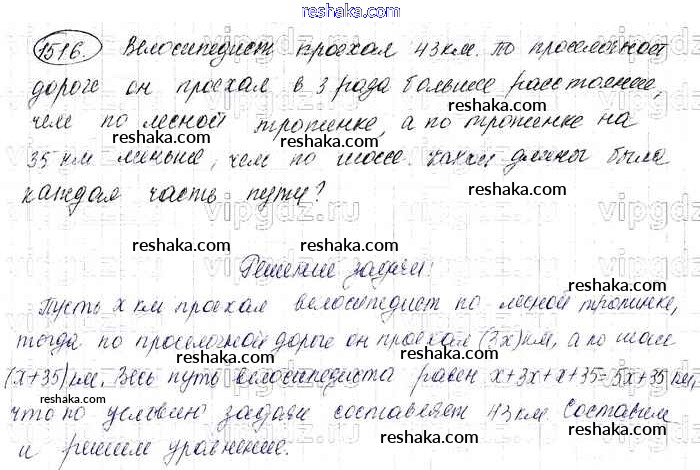 reshaka.com
1516. Велосипедист проехал 43 км. По проселочной
reshaka.com
дороге он проехал в 3 раза большее расстояние,
reshaka.com
чем по лесной тропинке, а по тропинке на
reshaka.com
35 км меньше, чем по шоссе. Какой длины была
reshaka.com
каждая часть пути?
vipgdz.ru
reshaka.com
Решение задачи:
reshaka.com
Пусть x км проехал велосипедист по лесной тропинке,
reshaka.com
тогда по проселочной дороге он проехал (3x) км, а по шоссе
reshaka.com
(x+35) км. Весь путь велосипедиста равен x+3x+x+35=5x+35 км,
vipgdz.ru
что по условию задачи составляет 43 км. Составим
reshaka.com
и решим уравнение.
reshaka.com